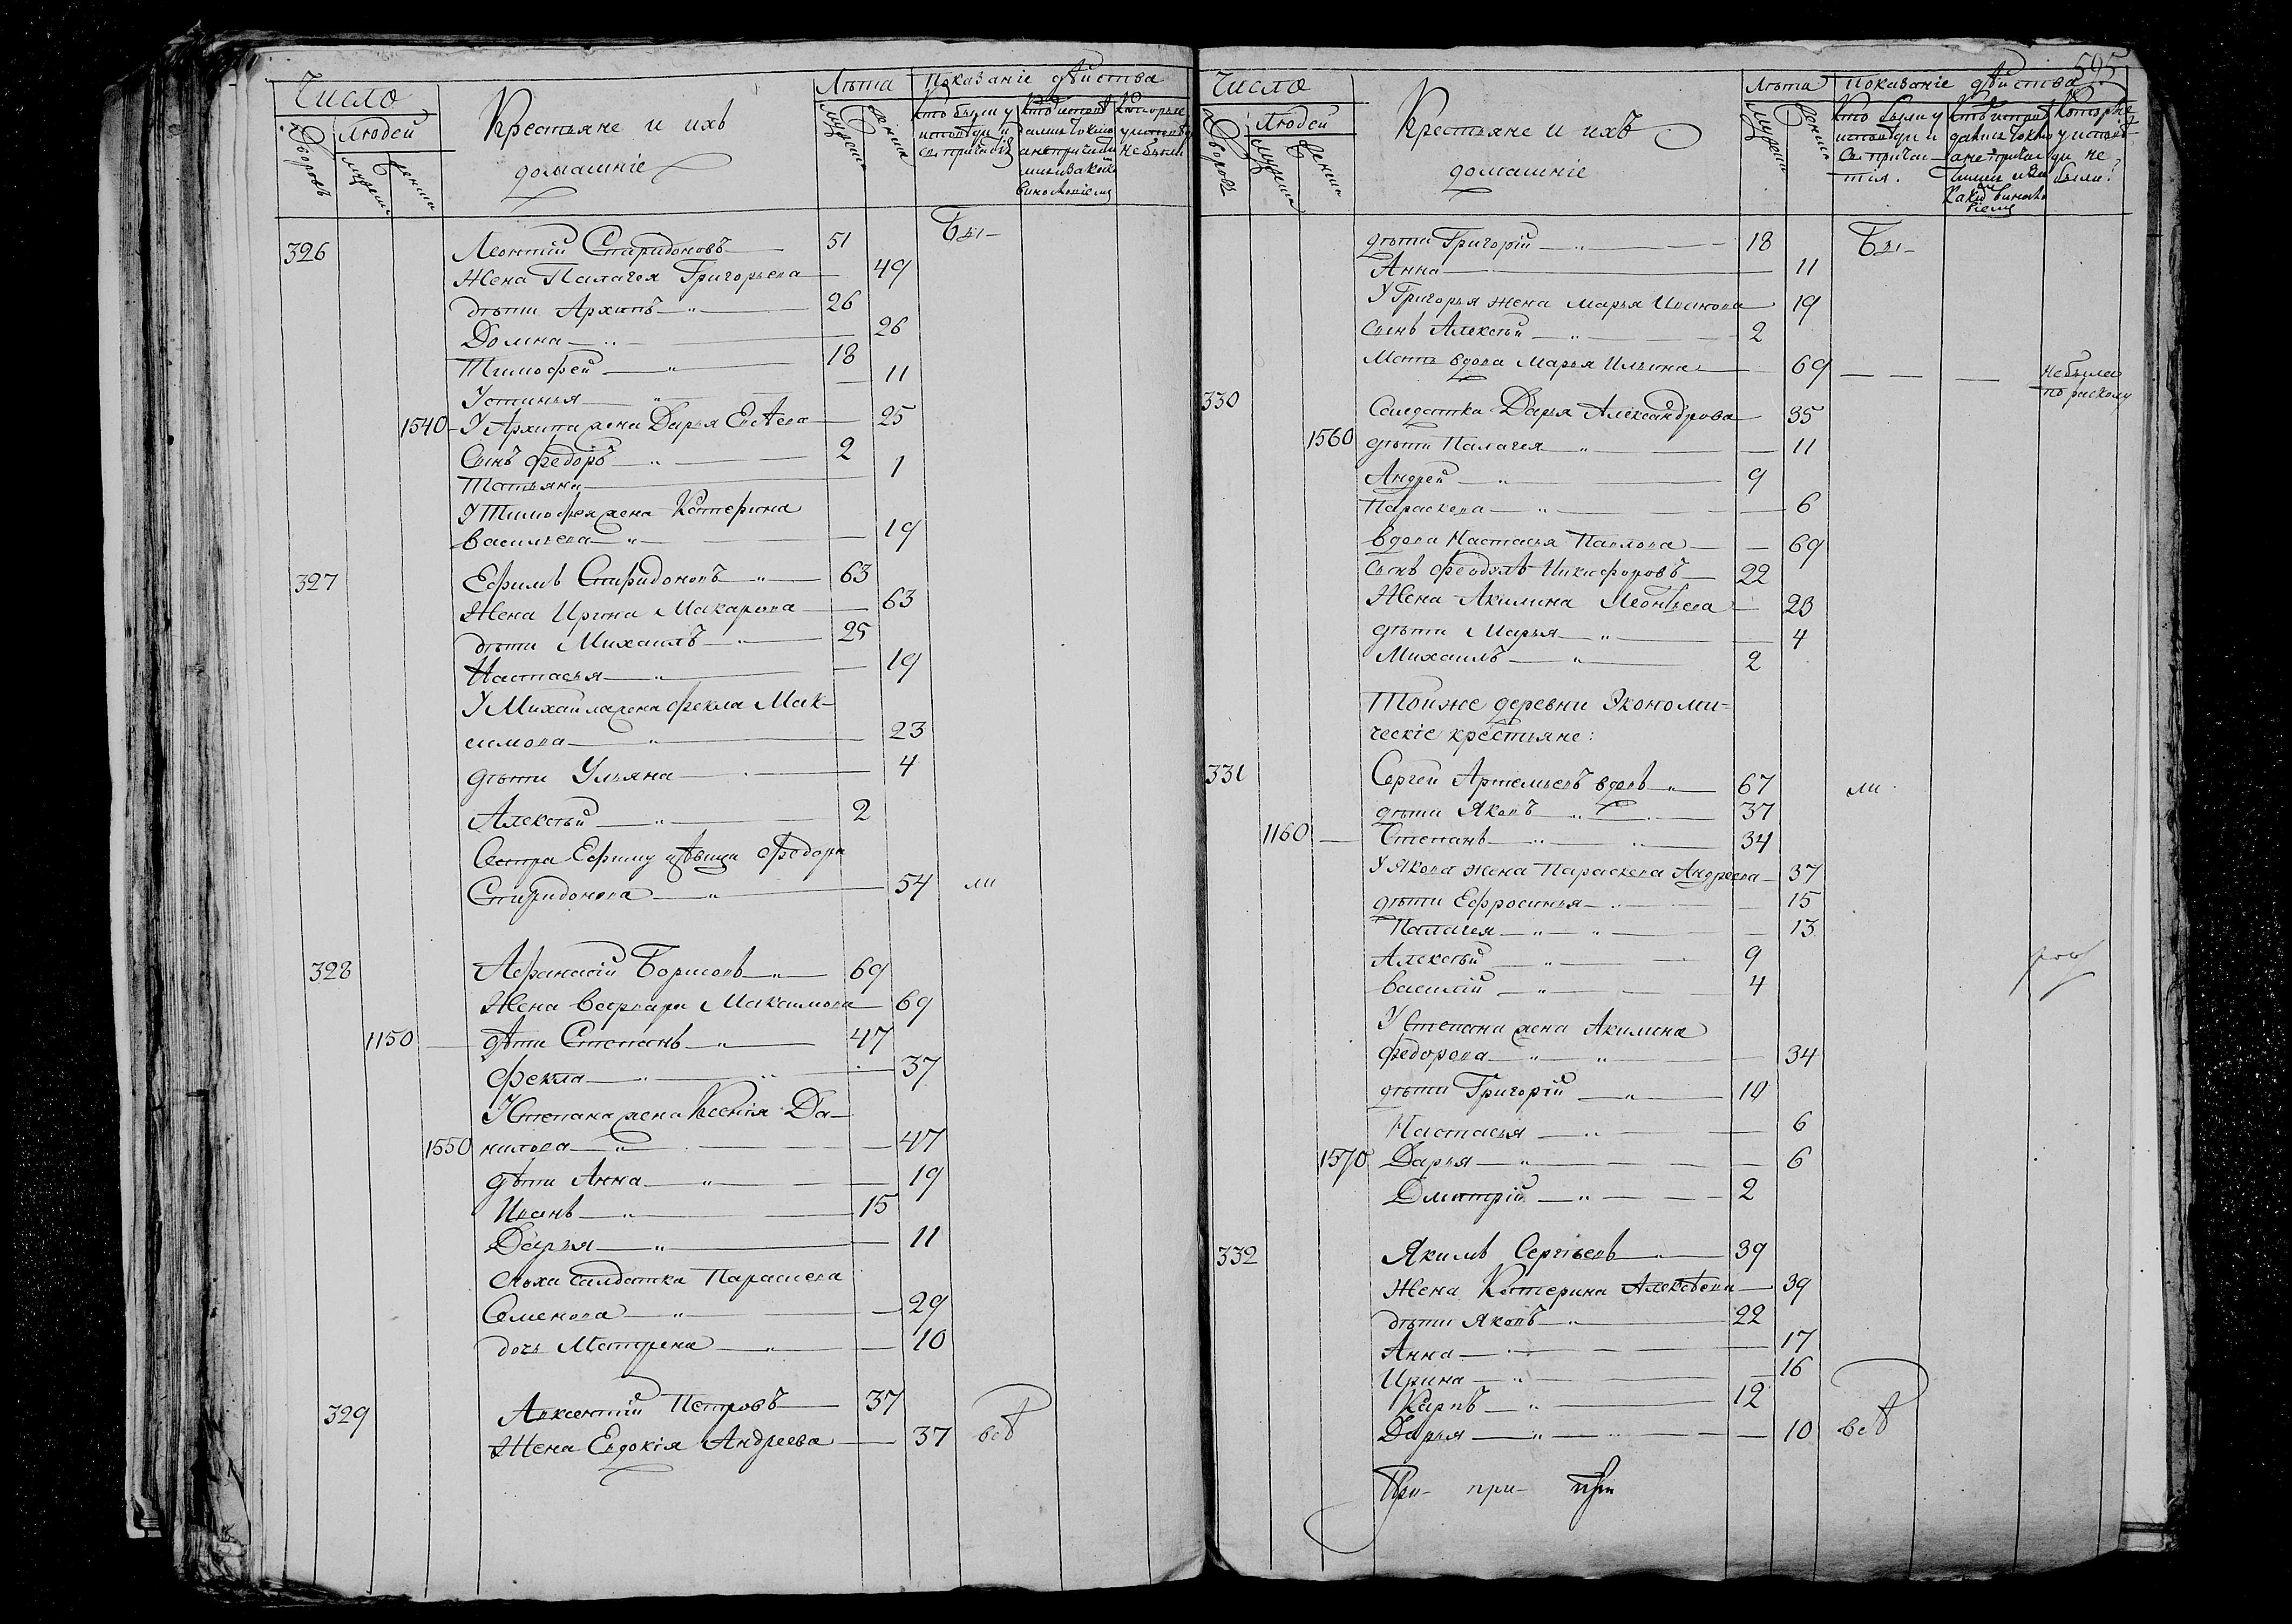 Число
Дворовъ
Людей
мужеска
женска
Крестьяне и ихъ
домашніе
Лѣта
мужеска
женска
Показаніе дѣйства
Кто были у
исповѣди и
св. причастія
Которые
у исповѣди
не были
326 Леонтій Спиридоновъ 51 Бы-
Жена Палагея Григорьева 49
дѣти Архипъ 26
Домна 26
Тимофей 18
Устинья 11
1540 У Архипа жена Дарья Евсѣева 25
Сынъ Федоръ 2
Татьяна 1
У Тимофея жена Катерина
Васильева 19
327 Ефимъ Спиридоновъ 63
Жена Ирина Макарова 63
дѣти Михаилъ 25
Настасья 19
У Михаила жена Фекла Мак-
симова 23
дѣти Ульяна 4
Алексѣй 2
Сестра Ефиму дѣвица Федора
Спиридонова 54 ли
328 Афанасій Борисовъ 69
Жена Варвара Максимова 69
1150 дѣти Степанъ 47
Фекла 37
У Степана жена Ксенія Да-
1550 нилова 47
дѣти Анна 19
Иванъ 15
Дарья 11
Сноха Салдатка Параскева
Семенова 29
дочь Матрена 10
329 Авксентій Петровъ 37
Жена Евдокія Андреева 37 всѣ
595
Число
Дворовъ
Людей
мужеска
женска
Крестьяне и ихъ
домашніе
Лѣта
мужеска
женска
Показаніе дѣйства
Кто были у
исповѣди и
Св. причас-
тія.
Которые
у исповѣ-
ди не
были?
дѣти Григорій 18 Бы-
Анна 11
У Григорья жена Марья Иванова 19
сынъ Алексѣй 2
Мать вдова Марья Ильина 69 Не были
по расколу
330 Салдатка Дарья Александрова 35
1560 дѣти Палагея 11
Андрей 9
Параскева 6
вдова Настасья Павлова 69
сынъ Феодулъ Никифоровъ 22
Жена Акилина Леонтьева 23
дѣти Марья 4
Михаилъ 2
Тойже деревни Экономи-
ческіе крестьяне:
331 Сергей Артемьевъ вдовъ 67 ли
дѣти Яковъ 37
1160 Степанъ 34
У Якова жена Параскева Андреева 37
дѣти Ефросинья 15
Палагея 13
Алексѣй 9
Василій 4
У Степана жена Акилина
Федорова 34
дѣти Григорій 10
Настасья 6
1570 Дарья 6
Дмитрій 2
332 Якимъ Сергѣевъ 39
Жена Катерина Алексѣева 39
дѣти Яковъ 22
Анна 17
Ирина 16
Карпъ 12
Дарья 10 всѣ
При- при-